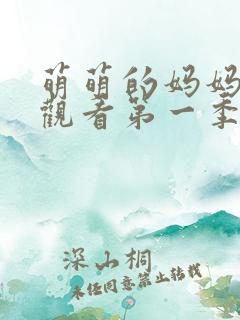 萌萌的妈妈
觀看第一季
深山桐
未经同意禁止转载